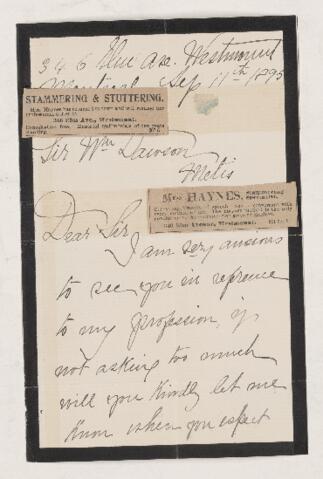 346 Elm Ave. Westmount
Montreal Sep 11th 1895
STAMMERING & STUTTERING.
346 Elm Ave., Westmount.
Sir Wm Dawson
Metis
HAYNES,
346 Elm Avenue, Westmount.
Dear Sir
I am very anxious
to see you in refrence
to my profession, if
not asking too much
will you kindly let me
know when you expect